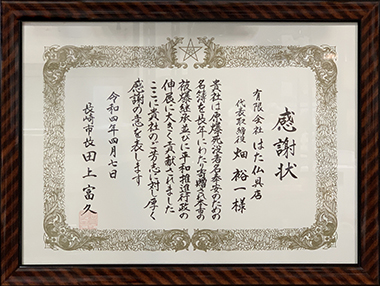 感謝状
有限会社 はた仏具店
代表取締役 畑 裕一 様
貴社は原爆死没者名奉安のための
名簿を長年にわたり寄贈され本市の
被爆継承並びに平和推進行政の
伸展に大きく貢献されました
ここに貴社のご芳志に対し厚く
感謝の意を表します
令和四年四月七日
長崎市長 田上富久